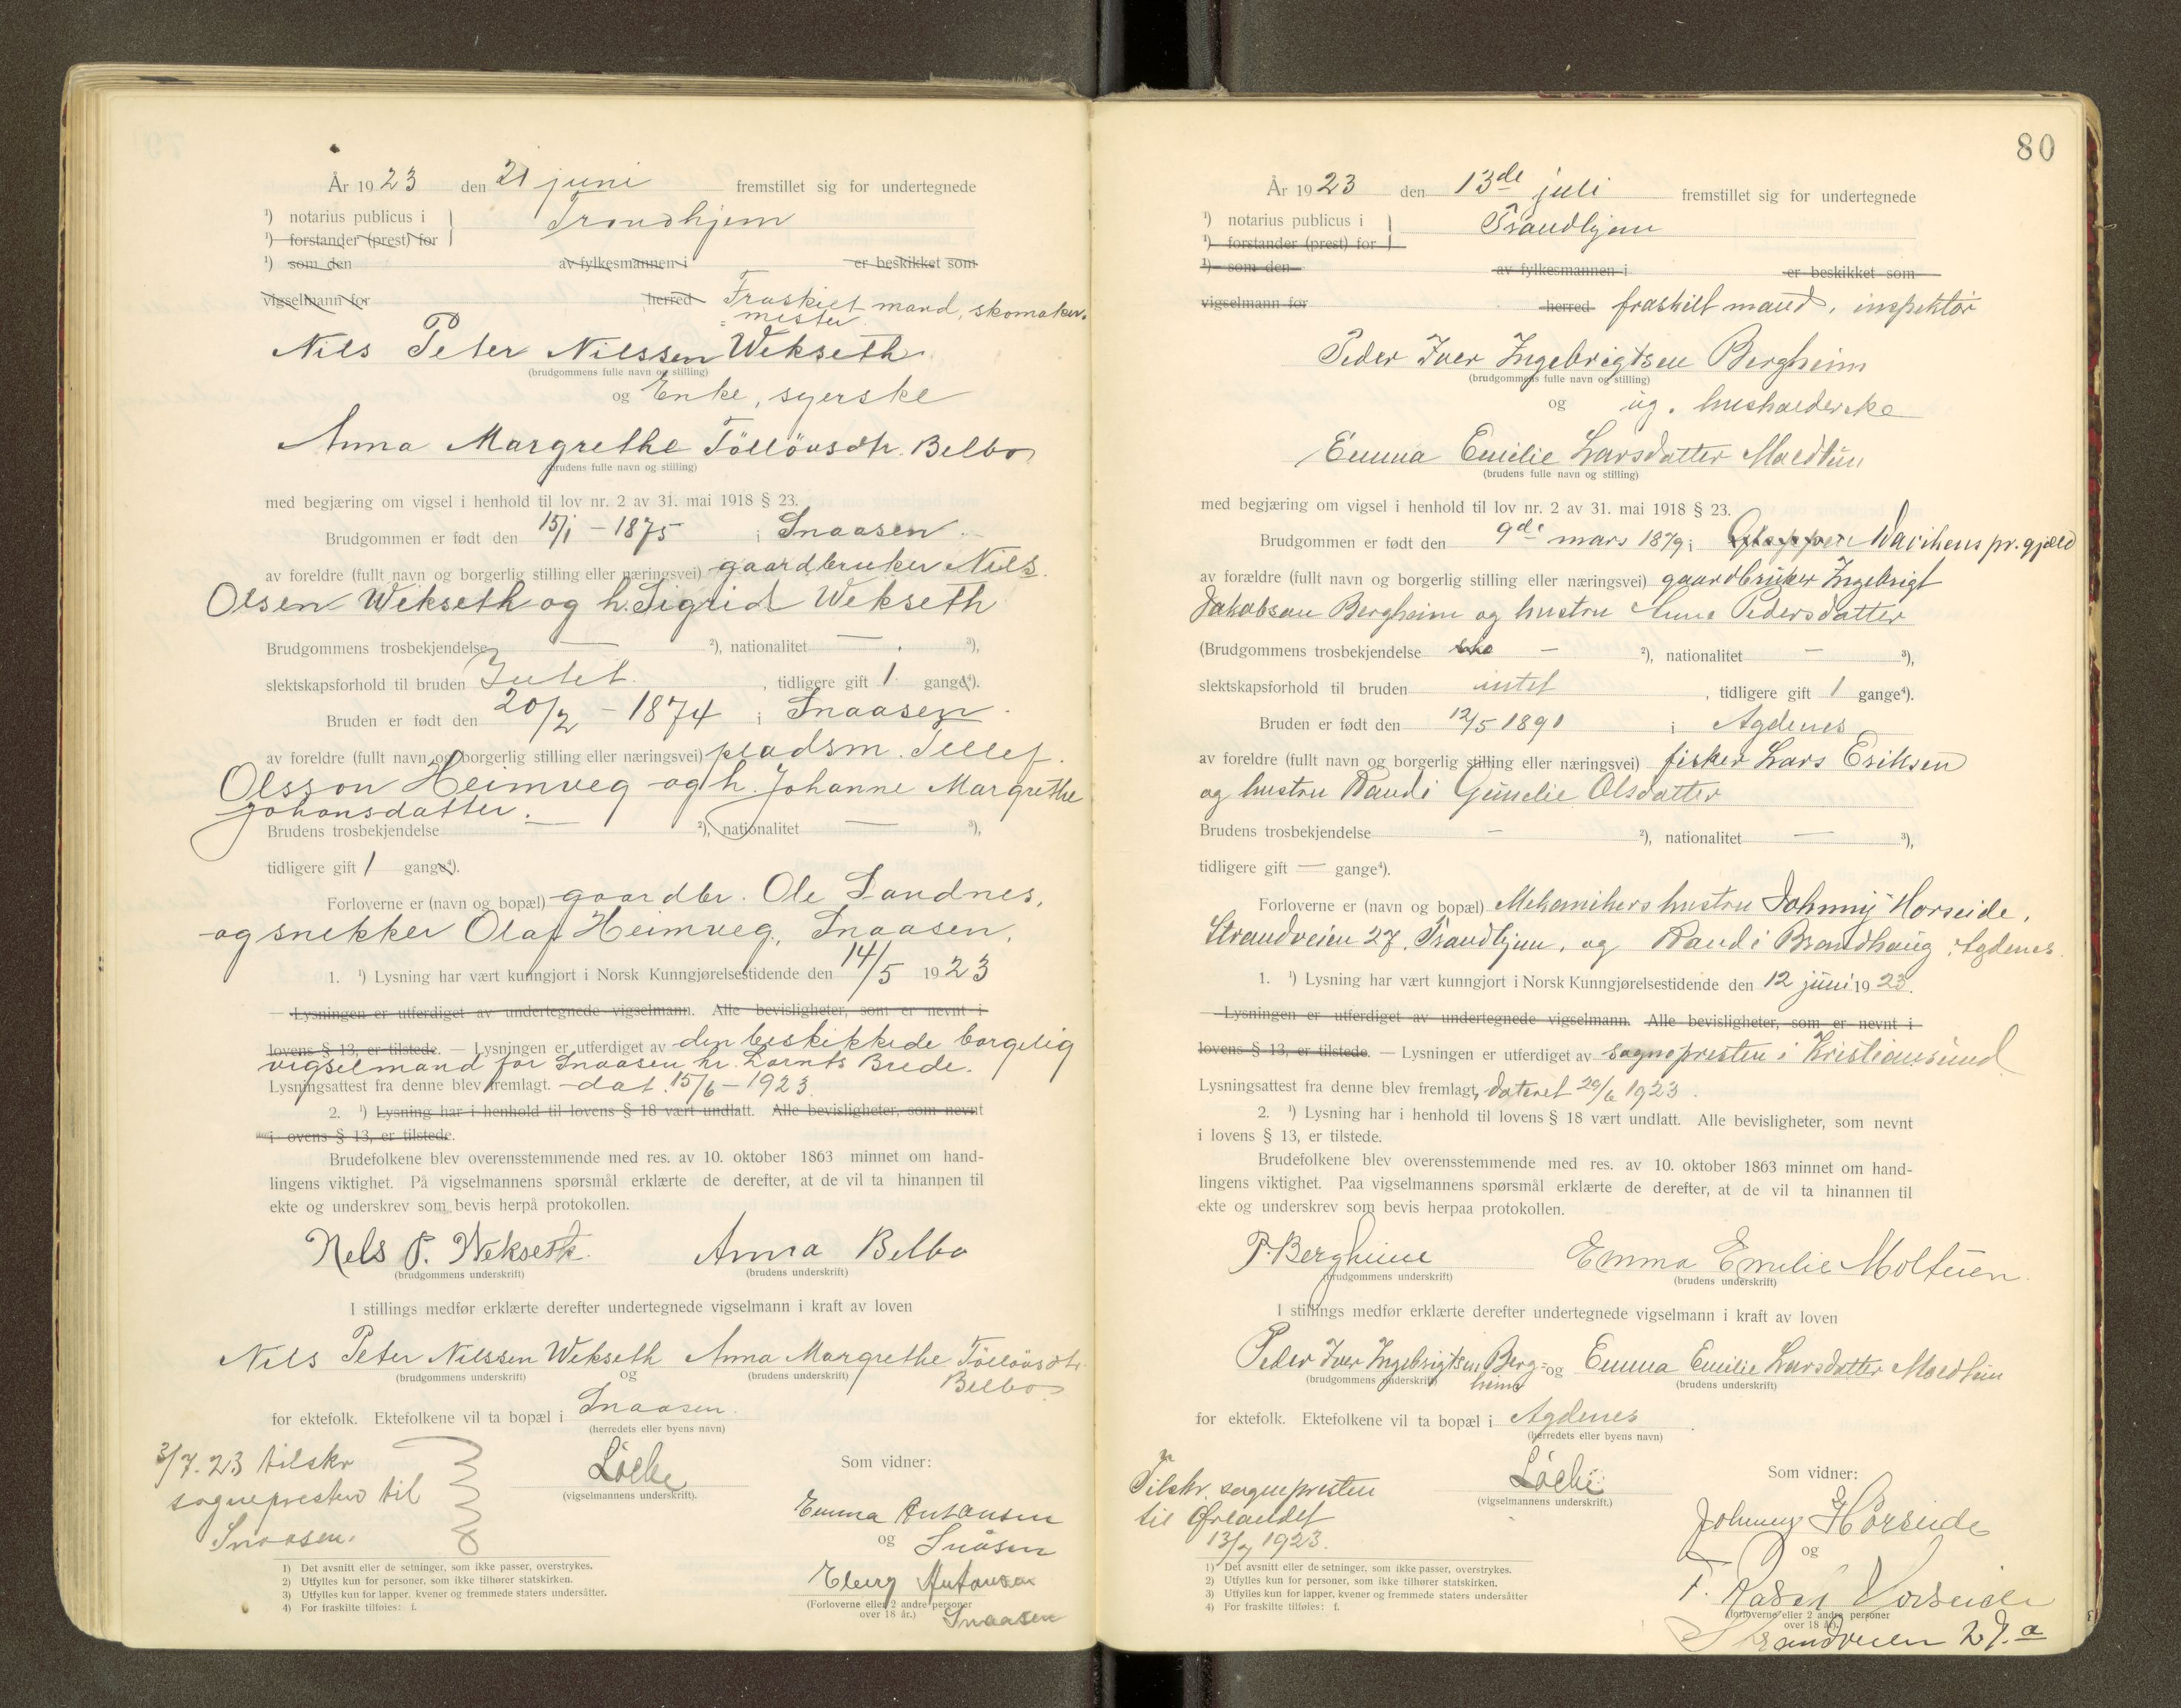 År 1923 den 21 juni fremstillet sig for undertegnede
¹) notarius publicus i } Trondhjem
¹) forstander (prest) for
¹) som den av fylkesmannen i er beskikket som
vigselmann for herred Fraskilt mand, skomaker-
mester
Nils Peter Nilssen Wekseth
(brudgommens fulle navn og stilling)
og Enke, syerske
Anna Margrethe Töllövsdtr. Belbo
(brudens fulle navn og stilling)
med begjæring om vigsel i henhold til lov nr. 2 av 31. mai 1918 § 23.
Brudgommen er født den 15/1 - 1875 i Snaasen
av foreldre (fullt navn og borgerlig stilling eller næringsvei) gaardbruker Nils
Olsen Wekseth og h. Sigrid Wekseth
Brudgommens trosbekjendelse — ²), nationalitet — ³),
slektskapsforhold til bruden Intet. , tidligere gift 1 gange⁴).
Bruden er født den 20/2 - 1874 i Snaasen.
av foreldre (fullt navn og borgerlig stilling eller næringsvei) pladsm. Tellef
Olsson Heimveg og h. Johanne Margrethe
Johansdatter.
Brudens trosbekjendelse — ²), nationalitet — ³),
tidligere gift 1 gange⁴).
Forloverne er (navn og bopæl) gaardbr. Ole Sandnes,
og snekker Olaf Heimveg, Snaasen.
1. ¹) Lysning har vært kunngjort i Norsk Kunngjørelsestidende den 14/5 1923
— Lysningen er utferdiget av undertegnede vigselmann. Alle bevisligheter, som er nevnt i
lovens § 13, er tilstede. — Lysningen er utferdiget av den beskikkede borgelig
vigselmand for Snaasen hr. Lornts Brede.
Lysningsattest fra denne blev fremlagt. - dat. 15/6 - 1923.
2. ¹) Lysning har i henhold til lovens § 18 vært undlatt. Alle bevisligheter, som nevnt
i ovens § 13, er tilstede.
Brudefolkene blev overensstemmende med res. av 10. oktober 1863 minnet om hand-
lingens viktighet. På vigselmannens spørsmål erklærte de derefter, at de vil ta hinannen til
ekte og underskrev som bevis herpå protokollen.
Nels P. Wekseth. Anna Belbo
(brudgommens underskrift) (brudens underskrift)
I stillings medfør erklærte derefter undertegnede vigselmann i kraft av loven
Nils Peter Nilssen Wekseth og Anna Margrethe Töllövsdtr.
Belbo
(brudgommens underskrift) (brudens underskrift)
for ektefolk. Ektefolkene vil ta bopæl i Snaasen.
(herredets eller byens navn)
3/7. 23 tilskr
sognepresten til
Snaasen.
Löche
(vigselmannens underskrift).
Som vidner:
Emma Antonsen
og Snåsen
Antonsen
(Forloverne eller 2 andre personer
over 18 år.) Snaasen
1) Det avsnitt eller de setninger, som ikke passer, overstrykes.
2) Utfylles kun for personer, som ikke tilhører statskirken.
3) Utfylles kun for lapper, kvener og fremmede staters undersåtter.
4) For fraskilte tilføies: f.
80
År 1923 den 13de juli fremstillet sig for undertegnede
¹) notarius publicus i } Trondhjem
¹) forstander (prest) for
¹) som den av fylkesmannen i er beskikket som
vigselmann for herred fraskilt mand, inspektör
Peder Iver Ingebrigtsen Bergheim
(brudgommens fulle navn og stilling)
og ug. husholderske
Emma Emilie Larsdatter Moldtun
(brudens fulle navn og stilling)
med begjæring om vigsel i henhold til lov nr. 2 av 31. mai 1918 § 23.
Brudgommen er født den 9de mars 1879 i pr.gjæld
av forældre (fullt navn og borgerlig stilling eller næringsvei) gaardbruker Ingebrigt
Jakobsen Bergheim og hustru Anne Pedersdatter
(Brudgommens trosbekjendelse — ²), nationalitet — ³),
slektskapsforhold til bruden intet , tidligere gift 1 gange⁴).
Bruden er født den 12/5 1891 i Agdenes
av foreldre (fullt navn og borgerlig stilling eller næringsvei) fisker Lars Eriksen
og hustru Randi Gunelie Olsdatter
Brudens trosbekjendelse — ²), nationalitet — ³),
tidligere gift — gange⁴).
Forloverne er (navn og bopæl) Mekanikers hustru Johnny Horseide,
Strandveien 27, Trondhjem, og Randi Brandhaug, Agdenes.
1. ¹) Lysning har vært kunngjort i Norsk Kunngjørelsestidende den 12 juni 1923.
— Lysningen er utferdiget av undertegnede vigselmann. Alle bevisligheter, som er nevnt i
lovens § 13, er tilstede. — Lysningen er utferdiget av sognepresten i Kristiansund
Lysningsattest fra denne blev fremlagt, dateret 29/6 1923.
2. ¹) Lysning har i henhold til lovens § 18 vært undlatt. Alle bevisligheter, som nevnt
i lovens § 13, er tilstede.
Brudefolkene blev overensstemmende med res. av 10. oktober 1863 minnet om hand-
lingens viktighet. Paa vigselmannens spørsmål erklærte de derefter, at de vil ta hinannen til
ekte og underskrev som bevis herpaa protokollen.
P. Bergheim Emma Emilie Moltuen.
(brudgommens underskrift) (brudens underskrift)
I stillings medfør erklærte derefter undertegnede vigselmann i kraft av loven
Peder Iver Ingebrigtsen Berg-
heim og Emma Emilie Larsdatter Moldtun
(brudgommens underskrift) (brudens underskrift)
for ektefolk. Ektefolkene vil ta bopæl i Agdenes
(herredets eller byens navn)
Tilskr. sognepresten
til Ørlandet
13/7 1923.
Löche
(vigselmannens underskrift.)
Som vidner:
Johnny Horseide
og
Horseide
(forloverne eller 2 andre personer
over 18 år).
Strandveien 27.a
1) Det avsnitt eller de setninger, som ikke passer, overstrykes.
2) Utfylles kun for personer, som ikke tilhører statskirken.
3) Utfylles kun for lapper, kvener og fremmede staters undersåtter
4) For fraskilte tilføies: f.